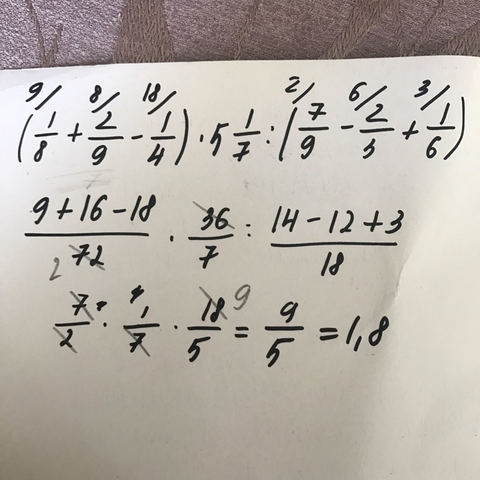 9/ 8/ 18/ 2/ 6/ 3/
(1/8 + 2/9 - 1/4) · 5 1/7 : (7/9 - 2/3 + 1/6)
9+16-18/72 · 36/7 : 14-12+3/18
2
7/2 · 1/7 · 18/5 = 9/5 = 1,8
9